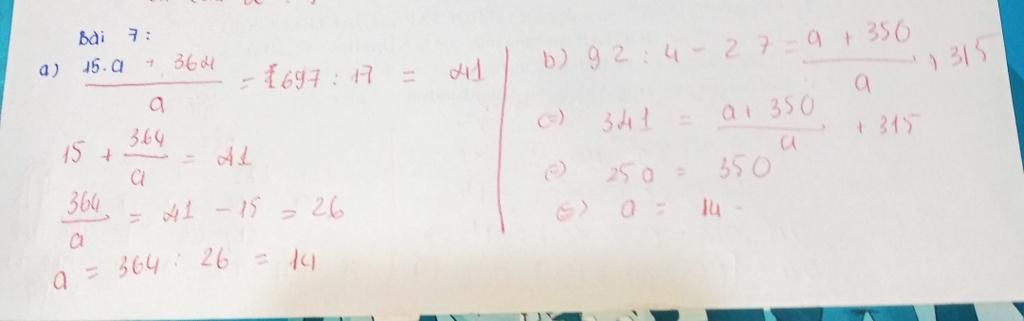 Bài 7:
a) 15.a + 364 / a = 1697 : 17 = 41
15 + 364 / a = 41
364 / a = 41 - 15 = 26
a = 364 : 26 = 14
b) 92 : 4 - 27 = a + 350 / a + 315
(=) 341 = a + 350 / a + 315
(=) 250 = 350
(=) a = 14